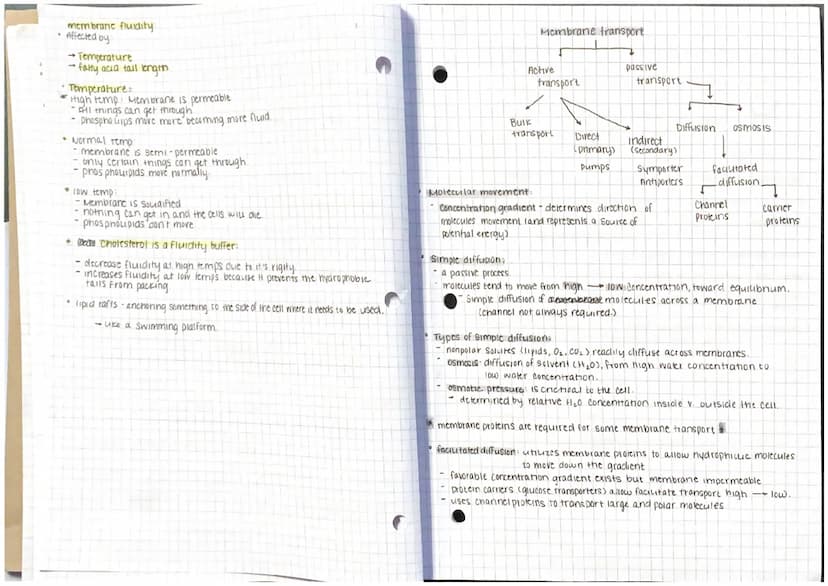 membrane fluidity
• Affected by
→ Temperature
→ fatty acid tail length
• Temperature:
High temp: Membrane is permeable
- all things can get through
- phospholips move more becoming more fluid
• Normal temp:
- membrane is semi-permeable
- only certain things can get through
- phospholipids move normally.
• low temp:
- Membrane is solidified
- nothing can get in and the cells will die
- phospholipids don't move
• Cholesterol is a fluidity buffer:
- decrease fluidity at high temps due to it's rigity
- increases fluidity at low temps because it prevents the hydrophobic
tails from packing
• lipid rafts - anchoring something to the side of the cell where it needs to be used.
→ like a swimming platform.
Membrane transport
Active transport
passive transport
Bulk transport
Direct (primary)
Indirect (secondary)
Diffusion
osmosis
pumps
Symporter
Antiporters
facilitated diffusion
Channel proteins
carrier proteins
• Molecular movement:
- Concentration gradient - determines direction of
molecules movement (and represents a source of
potential energy)
• Simple diffusion:
- a passive process
- molecules tend to move from high → low concentration, toward equilibrium.
- Simple diffusion of molecules across a membrane
(channel not always required.)
• Types of Simple diffusion:
- nonpolar solutes (lipids, O₂, CO₂) readily diffuse across membranes.
- osmosis: diffusion of solvent (H₂O), from high water concentration to
low water concentration.
- osmotic pressure: is critical to the cell.
→ determined by relative H₂O concentration inside v. outside the cell.
* membrane proteins are required for some membrane transport *
• facilitated diffusion: utilizes membrane proteins to allow hydrophilic molecules
to move down the gradient
- favorable concentration gradient exists but membrane impermeable
- protein carriers (glucose transporters) allow facilitate transport high → low.
- uses channel proteins to transport large and polar molecules